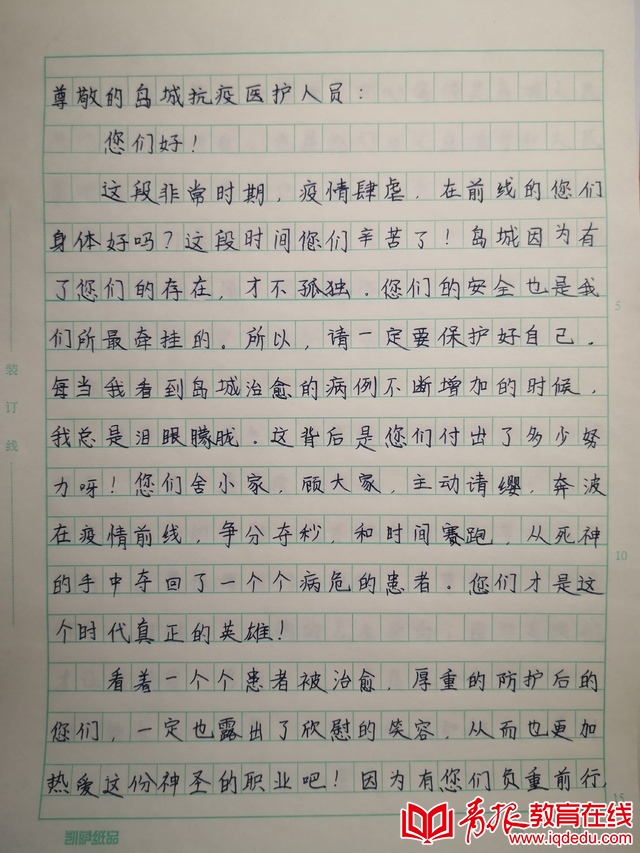 尊敬的岛城抗疫医护人员：
您们好！
这段非常时期，疫情肆虐，在前线的您们
身体好吗？这段时间您们辛苦了！岛城因为有
了您们的存在，才不孤独．您们的安全也是我
们所最牵挂的。所以，请一定要保护好自己．
每当我看到岛城治愈的病例不断增加的时候，
我总是泪眼朦胧．这背后是您们付出了多少努
力呀！您们舍小家，顾大家，主动请缨，奔波
在疫情前线，争分夺秒，和时间赛跑，从死神
的手中夺回了一个个病危的患者．您们才是这
个时代真正的英雄！
看着一个个患者被治愈，厚重的防护后的
您们，一定也露出了欣慰的笑容，从而也更加
热爱这份神圣的职业吧！因为有您们负重前行，
装订线
5
10
15
凯萨纸品
青报教育在线
www.iqdedu.com